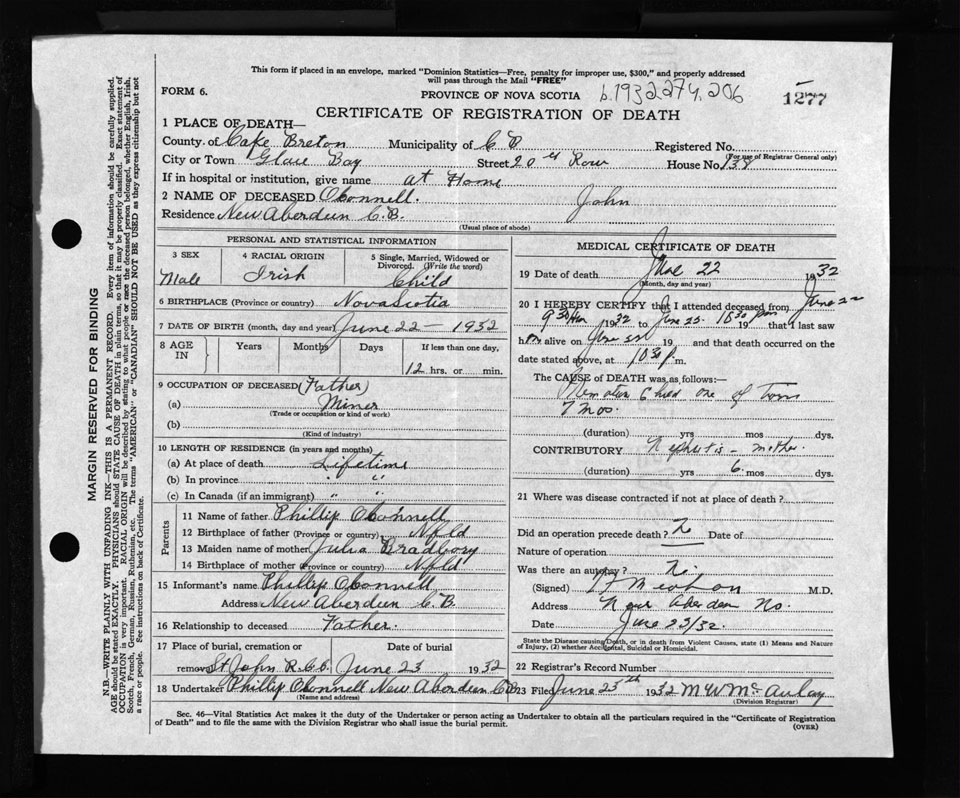 This form if placed in an envelope, marked "Dominion Statistics—Free, penalty for improper use, $300," and properly addressed
will pass through the Mail "FREE"
FORM 6.
PROVINCE OF NOVA SCOTIA b.1932 274, 206
1277
CERTIFICATE OF REGISTRATION OF DEATH
1 PLACE OF DEATH—
County of Cape Breton Municipality of C B Registered No.
(For use of Registrar General only)
City or Town Glace Bay Street 20 Row House No. 138
If in hospital or institution, give name at Home
2 NAME OF DECEASED Oconnell. John
Residence New Aberdeen C.B.
(Usual place of abode)
PERSONAL AND STATISTICAL INFORMATION
3 SEX 4 RACIAL ORIGIN 5 Single, Married, Widowed or
Divorced. (Write the word)
Male Irish Child
6 BIRTHPLACE (Province or country) Nova Scotia
7 DATE OF BIRTH (month, day and year) June 22 — 1932
8 AGE IN Years Months Days If less than one day,
12 hrs. or min.
9 OCCUPATION OF DECEASED (Father)
(a) Miner
(Trade or occupation or kind of work)
(b)
(Kind of industry)
10 LENGTH OF RESIDENCE (in years and months)
(a) At place of death Lifetime
(b) In province " "
(c) In Canada (if an immigrant) " "
Parents
11 Name of father Phillip Oconnell
12 Birthplace of father (Province or country) Nfld
13 Maiden name of mother Julia Bradbory
14 Birthplace of mother (Province or country) Nfld
15 Informant's name Phillip Oconnell
Address New Aberdeen C.B.
16 Relationship to deceased Father.
17 Place of burial, cremation or Date of burial
removal St John R.C.C. June 23 1932
18 Undertaker Phillip Oconnell New Aberdeen CB
(Name and address)
MEDICAL CERTIFICATE OF DEATH
19 Date of death June 22 1932
(Month, day and year)
20 I HEREBY CERTIFY that I attended deceased from June 22
1932 to June 10 30 pm 19 that I last saw
him alive on 19 and that death occurred on
date stated above, at 10 30 p m.
The CAUSE of DEATH was as follows:—
child one of
7 mos.
(duration) yrs mos dys.
CONTRIBUTORY Nephritis - mother
(duration) yrs 6 mos dys.
21 Where was disease contracted if not at place of death ?
Did an operation precede death ? Date of
Nature of operation
Was there an autopsy ? No.
(Signed) M.D.
Address New Aberdeen N.S.
Date June 23/32.
State the Disease causing Death, or in death from Violent Causes, state (1) Means and Nature
of Injury, (2) whether Accidental, Suicidal or Homicidal.
22 Registrar's Record Number
23 Filed June 25th 1932 M W McAulay
(Division Registrar)
Sec. 46—Vital Statistics Act makes it the duty of the Undertaker or person acting as Undertaker to obtain all the particulars required in the "Certificate of Registration
of Death" and to file the same with the Division Registrar who shall issue the burial permit.
(OVER)
MARGIN RESERVED FOR BINDING
N.B.—WRITE PLAINLY WITH UNFADING INK—THIS IS A PERMANENT RECORD. Every item of information should be carefully supplied.
AGE should be stated EXACTLY. PHYSICIANS should STATE CAUSE OF DEATH in plain terms, so that it may be properly classified. Exact statement of
OCCUPATION is very important. RACIAL ORIGIN will be described by stating to what people or race the deceased person belonged, whether English, Irish,
Scotch, French, German, Russian, Ruthenian, etc. The terms "AMERICAN" or "CANADIAN" SHOULD NOT BE USED as they express citizenship but not
a race or people. See instructions on back of Certificate.